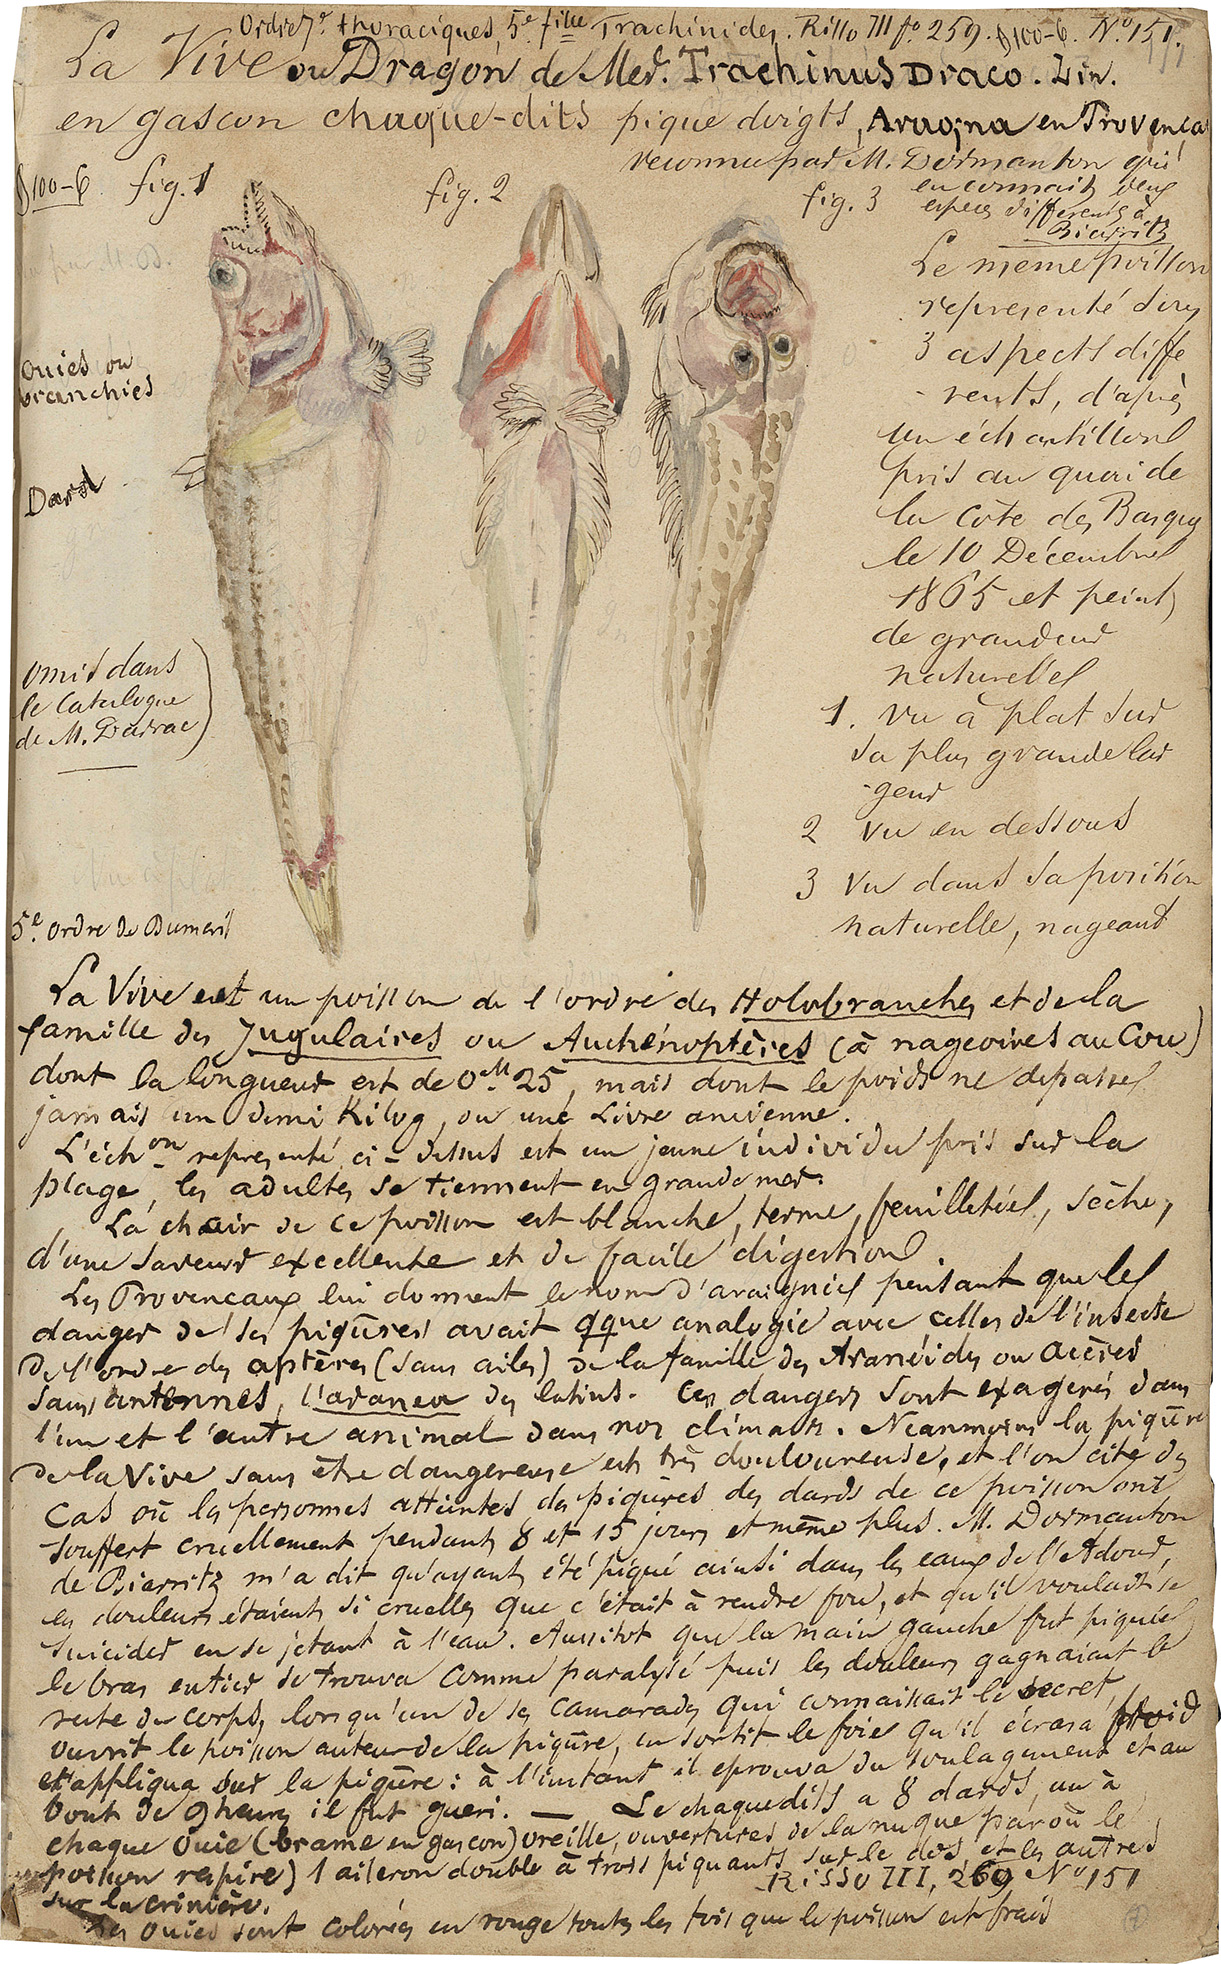 Ordre 7e thoraciques, 5e fille Trachinides. Risso III fo. 259. §100-6. No. 151.
La Vive ou Dragon de Mer. Trachinus Draco. Lin.
en gascon chaque-dits pique doigts, Aragna en Provença
reconnu par M. Dormanton qui
en connait deux
especes differentes à
Biarritz
§100-6. fig. 1
fig. 2
fig. 3
Le meme poisson
representé sous
3 aspects diffe
rents, d'après
un échantillon
pris au quai de
la Côte des Basques
le 10 Décembre
1865 et peint,
de grandeur
naturelle
1. vu à plat sur
sa plus grande lar
geur
2 vu en dessous
3 vu dans sa position
naturelle, nageant
ouies ou
branchies
Dard
omis dans
le Catalogue
de M. Darrac
5e. ordre de Dumeril
La Vive est un poisson de l'ordre des Holobranches et de la
famille des Jugulaires ou Auchénoptères (à nageoires au Cou)
dont la longueur est de 0M 25, mais dont le poids ne depasse
jamais un demi Kilog, ou une Livre ancienne.
L'échon representé ci-dessus est un jeune individu pris sur la
plage, les adultes se tiennent en grande mer.
La chair de ce poisson est blanche, ferme, feuilletée, sèche,
d'une saveur excellente et de facile digestion.
Les Provencaux lui donnent le nom d'araignée pensant que le
danger de ses piqûres avait qque analogie avec celles de l'insecte
de l'ordre des aptères (sans ailes) de la famille des Aranéides ou acères
sans antennes, l'aranea des latins. Ces dangers sont exagerés dans
l'un et l'autre animal dans nos climats. Néanmoins la piqûre
de la Vive sans être dangereuse est très douloureuse, et l'on cite des
cas où les personnes atteintes des piqûres des dards de ce poisson ont
souffert cruellement pendant 8 et 15 jours et même plus. M. Dormanton
de Biarritz m'a dit qu'ayant été piqué ainsi dans les eaux de l'Adour,
les douleurs étaient si cruelles que c'était à rendre fou, et qu'il voulait se
suicider en se jetant à l'eau. Aussitot que la main gauche fut piquée
le bras entier se trouva comme paralysé puis les douleurs gagnaient le
reste du corps, lorsqu'un de ses camarades qui connaissait le secret,
ouvrit le poisson auteur de la piqûre, en sortit le foie qu'il écrasa froid
et appliqua sur la piqûre: à l'instant il eprouva du soulagement et au
bout de 9 heures il fut gueri. — Le chaquedits a 8 dards, un à
chaque ouie (brame en gascon) oreille, ouvertures de la nuque par où le
poisson respire) 1 aileron double à trois piquants sur le dos, et les autres
sur la crinière.
Risso III, 269 No 151
Les ouies sont colorées en rouge toutes les fois que le poisson est frais